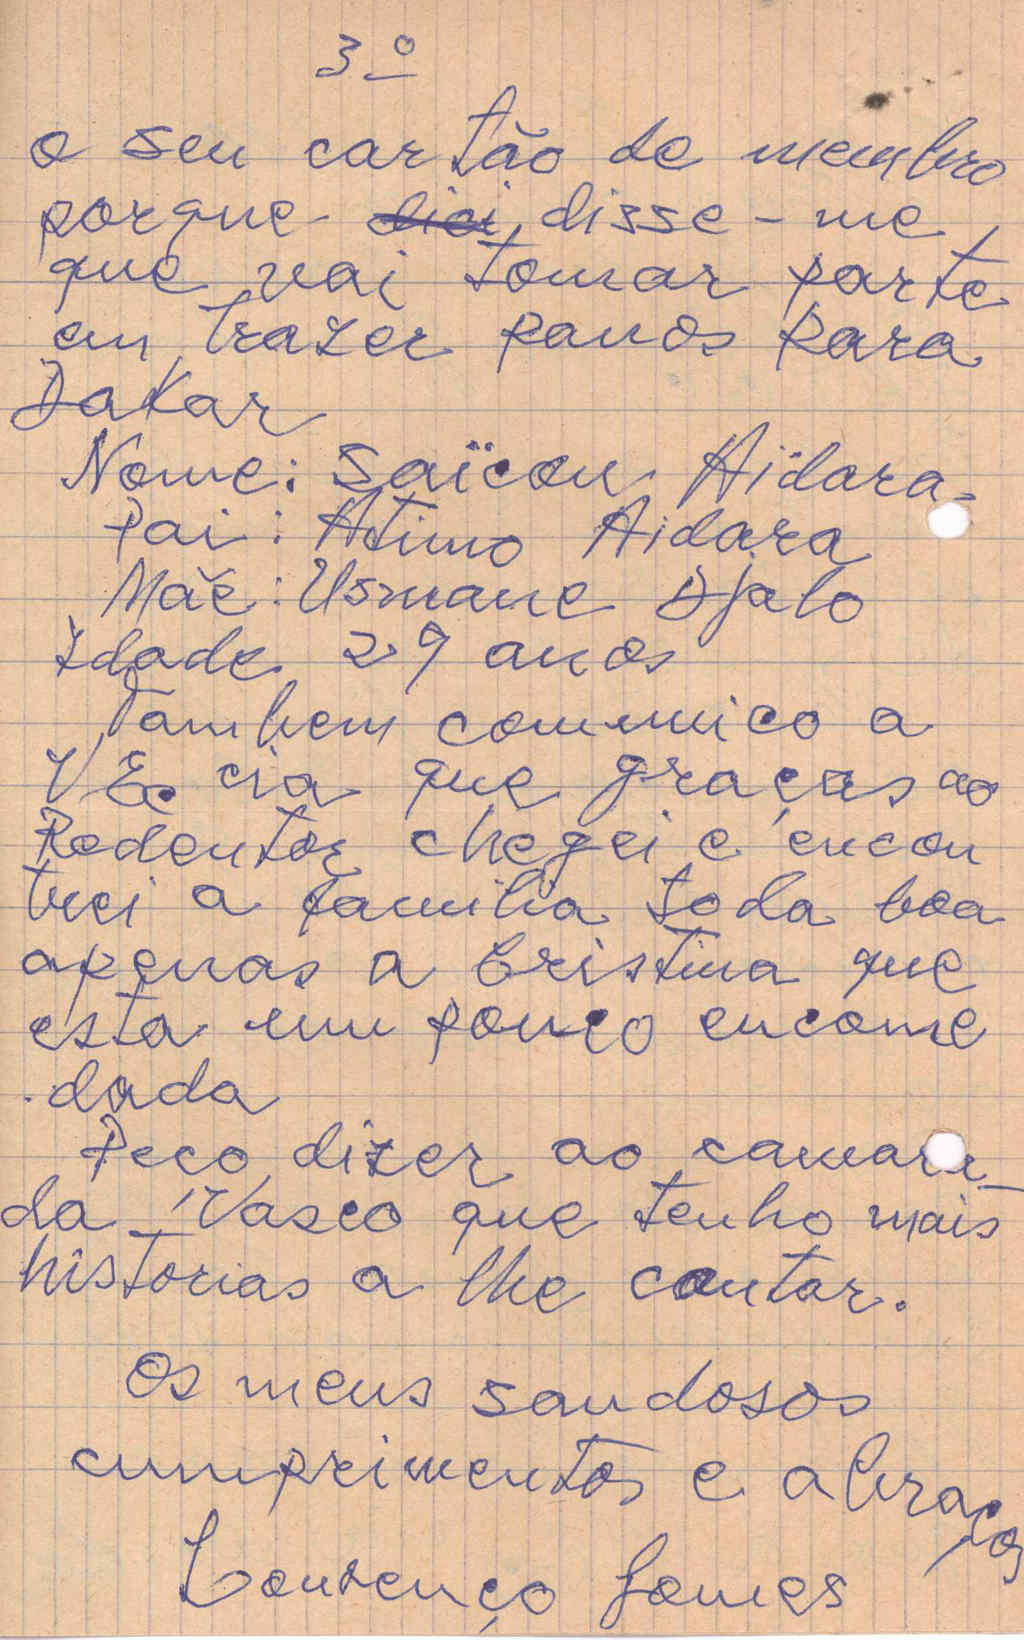 3º
o seu cartão de membro
porque disse-me
que vai tomar parte
em trazer panos para
Dakar
Nome: Saïcou Aïdara
Pai: Atimo Aidara
Mãe: Usmane Djalo
Idade 29 anos
Tambem comunico a
V Ex. cia que graças ao
Redentor chegei e encon
trei a familia toda boa
apenas a Cristina que
esta um pouco encome
dada
Peço dizer ao camara_
da Vasco que tenho mais
historias a lhe contar.
Os meus saudosos
cumprimentos e abraços
Lourenço Gomes